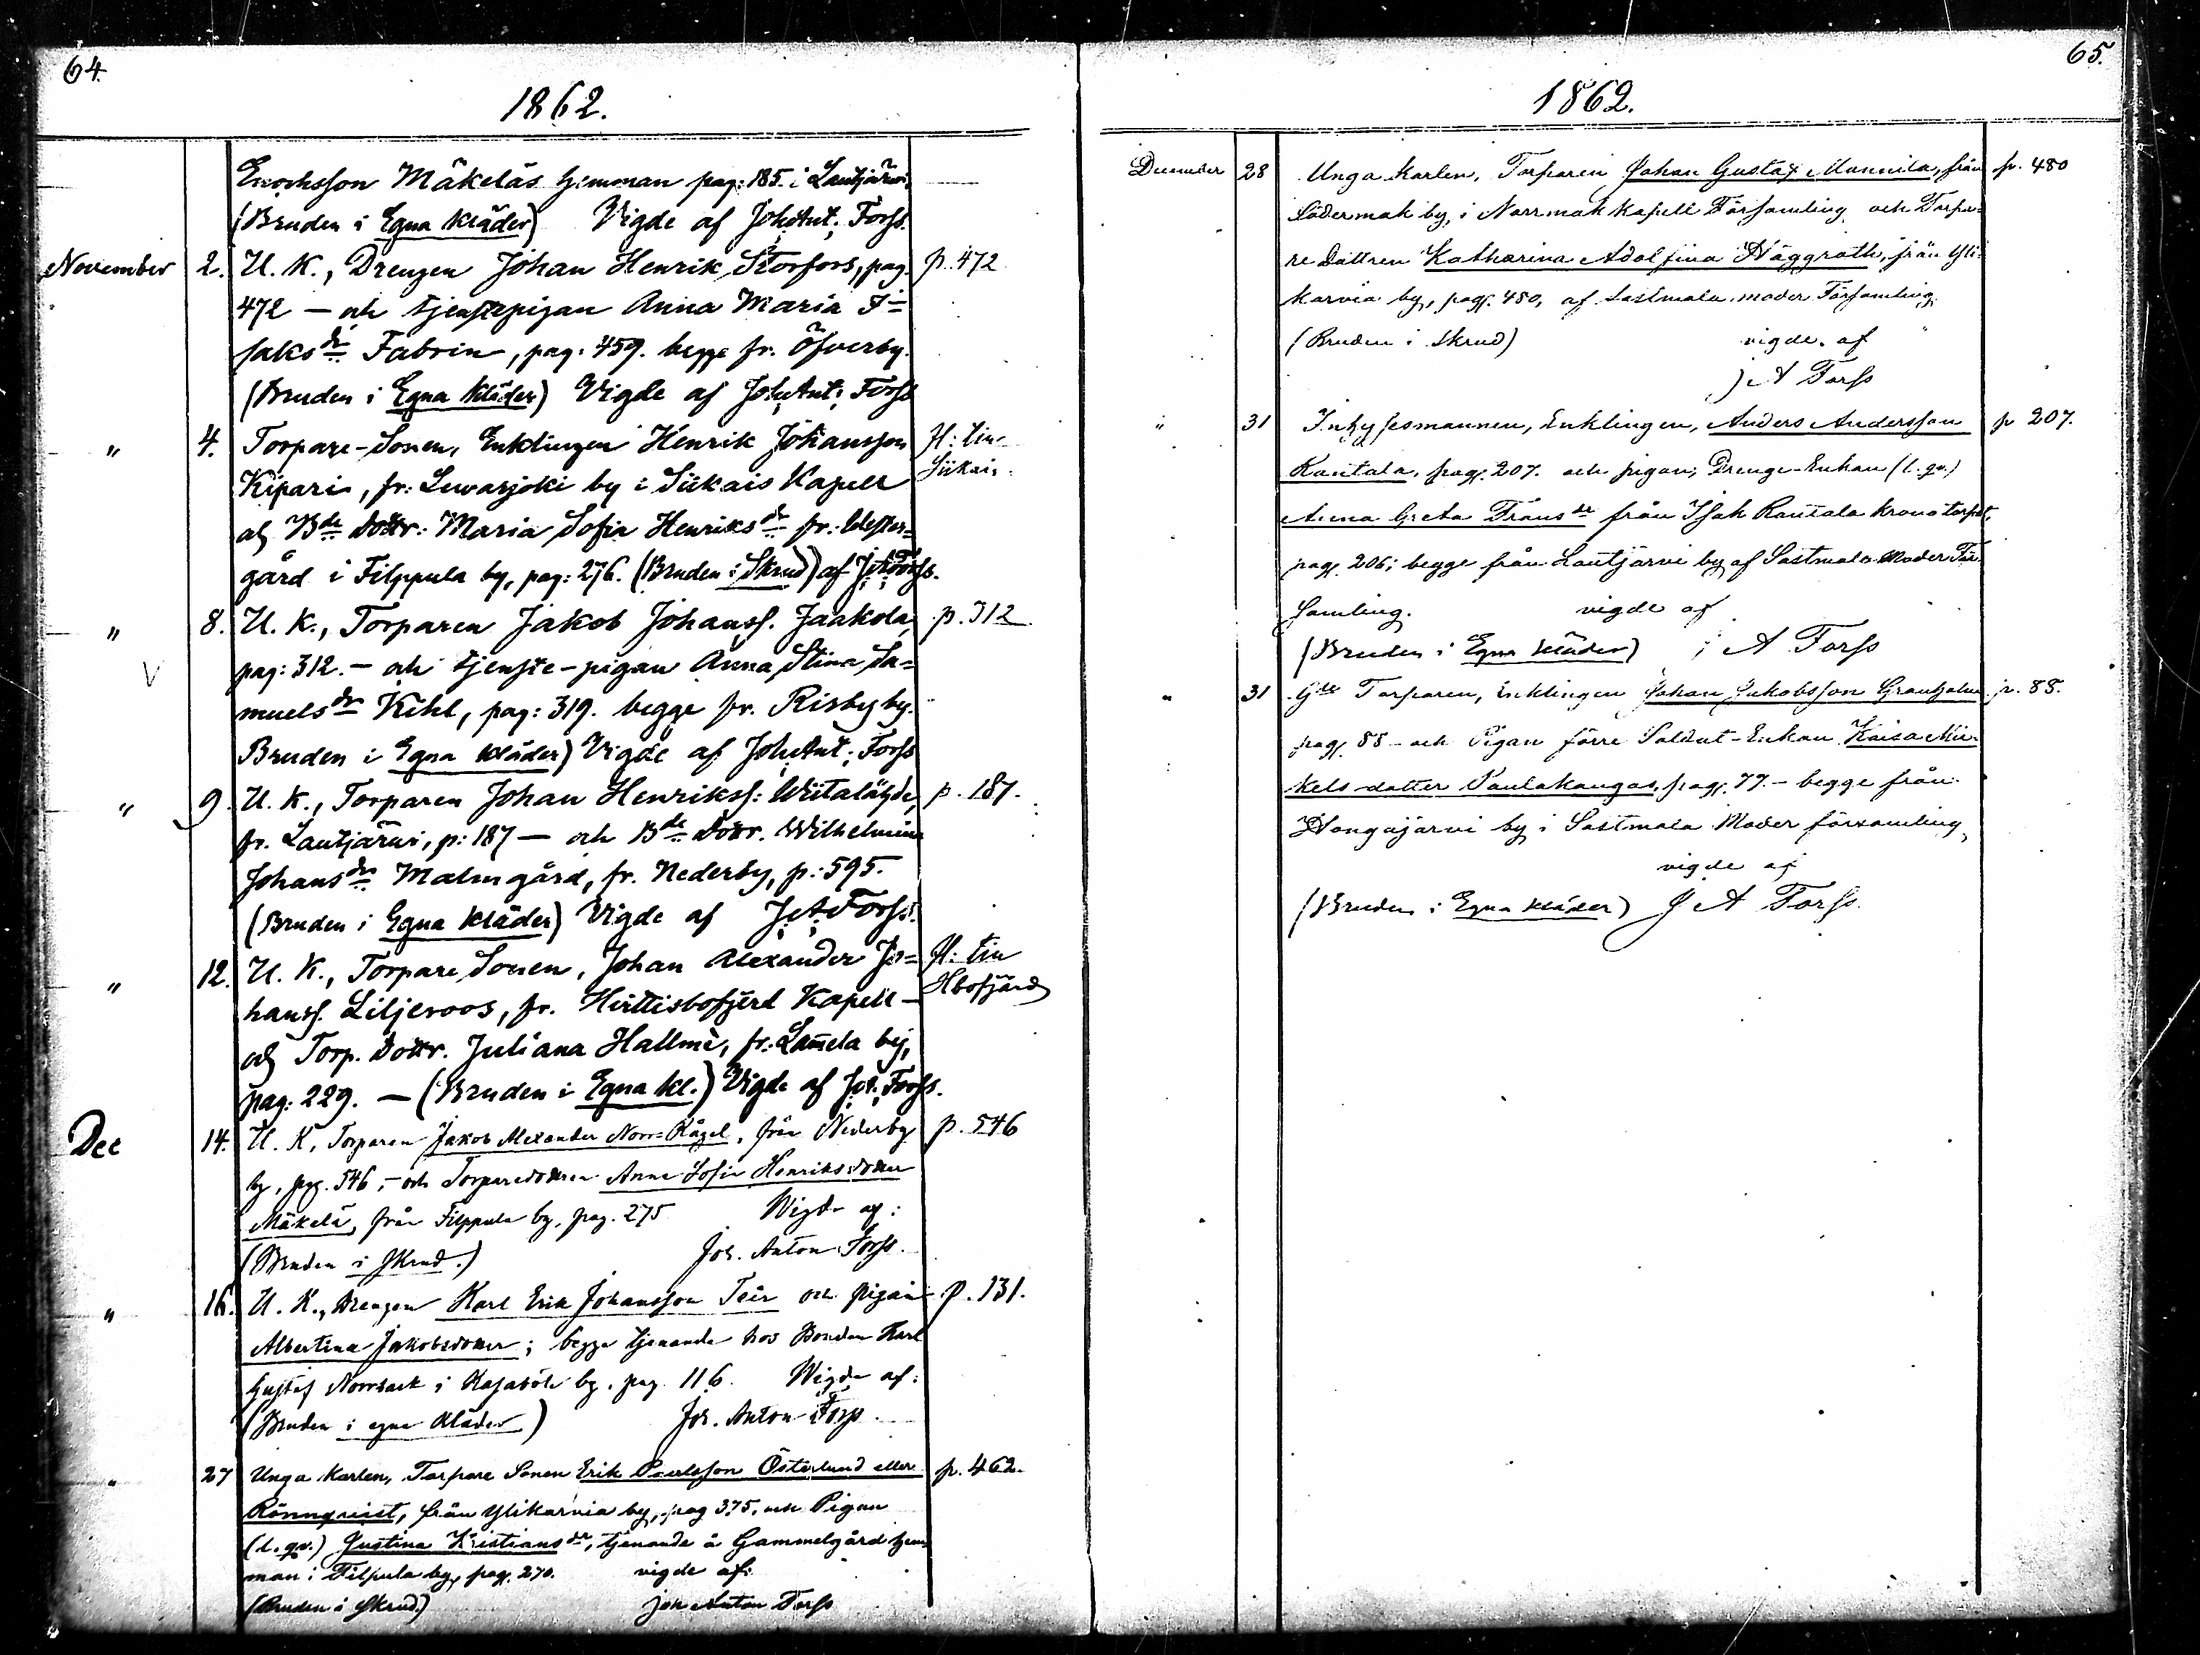 64.
1862.
Enochsson Mäkeläs hemman pag: 185. i Lautjärwi.
(Bruden i Egna kläder) Vigde af Joh: Ant: Forss.
November 2. U. K., Drengen Johan Henrik Storfors, pag. p. 472
472 — och tjenstepigan Anna Maria I=
saks dr Fabrin, pag: 459. begge fr. Öfverby.
(Bruden i Egna kläder) Vigde af Joh: Ant: Forss
" 4. Torpare-Sonen, Enklingen Henrik Johansson fl: till
Kipari, fr: Lewasjoki by i Siikais Kapell Siikais.
och Bde Dottr: Maria Sofia Henriks dr fr: Wester=
gård i Filppula by, pag: 276. (Bruden i Skrud) af J: A: Forss.
" 8. U. K., Torparen Jakob Johanss. Jaakola, p. 312.
V pag: 312. — och tjenste-pigan Anna Stina Sa=
muels dr Kihl, pag: 319. begge fr. Risby by.
Bruden i Egna kläder) Vigde af Joh: Ant: Forss
" 9. U. K., Torparen Johan Henrikss: Wiitalähde, p. 187.
fr. Lautjärwi, p: 187 — och Bde Dottr. Wilhelmina
Johans dr Malmgård, fr. Nederby, p.: 595.
(Bruden i Egna kläder) Vigde af J: A: Forss.
" 12. U. K., Torpare Sonen, Johan Alexander Jo= fl: till
hanss. Liljeroos, fr. Hvittisbofjerd Kapell — Hbofjärd
och Torp. Dottr. Juliana Hallmé, fr: Lamela by,
pag: 229. — (Bruden i Egna kl.) Vigde af J: A: Forss.
Dec 14. U. K, Torparen Jakob Alexander Norr-Kågel, från Nederby p. 546
by, pag. 546, — och Torparedottren Anna Sofia Henriksdotter
Mäkelä, från Filppula by, pag. 275 Wigde af:
(Bruden i Skrud.) Joh. Anton Forss.
" 16. U. K., Drengen Karl Erik Johansson Teir och pigan p. 131.
Albertina Jakobsdotter; begge tjenande hos Bonden Karl
Gustaf Norrback i Kasaböle by, pag. 116. Wigde af:
(Bruden i egna kläder) Joh. Anton Forss.
" 27 Unga karlen, Torpare Sonen Erik Paulsson Österlund eller p. 462.
Rönnqvist, från Ylikarvia by, pag 375. och Pigan
(l. qv.) Justina Kristians dr, tjenande å Gammelgård hem=
man i Filpula by, pag. 270. vigde af:
(Bruden i Skrud.) Joh Anton Forss
65.
1862.
December 28 Unga karlen, Torparen Johan Gustaf Mannila, från p. 480
Södermak by, i Norrmak Kapell Församling och Torpa=
re Dottren Katharina Adolfina Häggroth, från Yli=
karvia by, pag. 480, af Sastmola moder Församling.
(Bruden i Skrud) vigde af
J A Forss
" 31 Inhysesmannen, Enklingen, Anders Andersson p 207.
Rautala, pag. 207. och pigan, Drenge-Enkan (l. qv.)
Anna Greta Frans dr från Isak Rautala kronotorp,
pag. 206; begge från Lautjärvi by af Sastmola Moder För
samling. vigde af
(Bruden i Egna kläder) J A Forss
" 31 Gde Torparen, Enklingen Johan Jakobsson Granholm p. 88.
pag. 88 — och Pigan förre Soldat-Enkan Kaisa Mi=
kelsdotter Paulakangas, pag. 77. — begge från
Hongajärvi by i Sastmola Moder församling,
vigde af
(Bruden i Egna kläder) J A Forss.